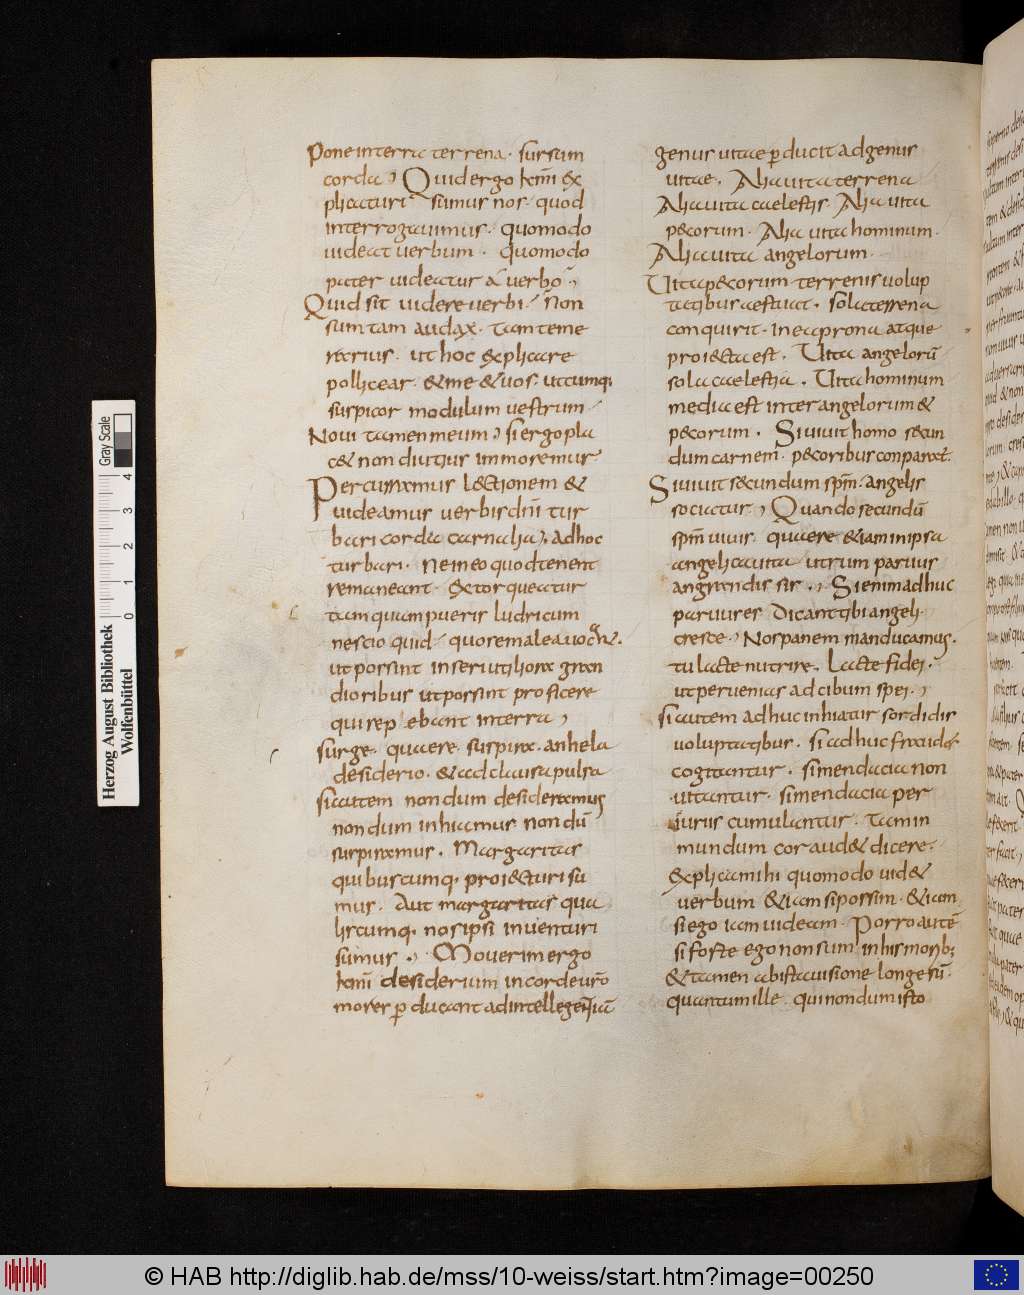 Pone in terra terrena · sursum
corda , Quid ergo hom̄ ex
plicaturi sumus nos · quod
interrogauimus · quomodo
uideat uerbum · quomodo
pater uideatur a uerbo ,
Quid sit uidere uerbi · Non
sum tam audax · tam teme
rarius · ut hoc explicare
pollicear · & me & uos · utcumq;
suspicor modulum uestrum ·
Noui tamen meum , si ergo pla
c& non diutius inmoremur
Percurramus lectionem &
uideamus uerbis dn̄i tur
bari corda carnalia , adhoc
turbari · Ne in eo quod tenent
remaneant · Extorqueatur
tamquam pueris ludricum
nescio quid · quo male auocan̄t ·
ut possint inseri utiliora gran
dioribus ut possint proficere
qui repebant in terra ,
surge · quaere · suspira · anhela
desiderio · & ad clausa pulsa
si autem nondum desideramus
nondum inhiamus nondū
suspiramus · Margaritas
quibuscumq; proiecturi su
mus · Aut margaritas qua
liscumq; nos ipsi inuenturi
sumus , Mouerim ergo
hom̄ desiderium in corde ur̄o
mores p̱ducant ad intellegentiā
genus uitae p̱ducit ad genus
uitae · Alia uita terrena
Alia uita caelestis · Alia uita
pecorum · Alia uita hominum ·
Alia uita angelorum ·
Uita pecorum terrenis uolup
tatibus aestuat · sola terrena
conquirit · in ea prona atque
proiecta est · Uita angelorū
sola caelestia · Uita hominum
media est inter angelorum &
pecorum · Si uiuit homo secun
dum carnem · pecoribus conparat̄ ·
Si uiuit secundum sp̄m · angelis
sociatur , Quando secundū
sp̄m uiuis quaere etiam in ipsa
angelica uita utrum paruus
an grandis sis , Si enim adhuc
paruus es Dicant tibi angeli ·
cresce , Nos panem manducamus ·
tu lacte nutrire · Lacte fidei ·
ut peruenias ad cibum spei ·
si autem adhuc inhiatur sordidis
uoluptatibus · si adhuc fraudes
cogitantur · si mendacia non
uitantur · si mendacia per
iuriis cumulantur · Tam in
mundum cor aud& dicere ·
Explica mihi quomodo uid&
uerbum & iam si possim · & iam
si ego iam uideam · Porro autē
si forte ego non sum in his morib;
& tamen ab ista uisione longe sū ·
quantum ille qui nondum isto
Herzog August Bibliothek
Wolfenbüttel
Gray Scale
0 1 2 3 4
© HAB http://diglib.hab.de/mss/10-weiss/start.htm?image=00250